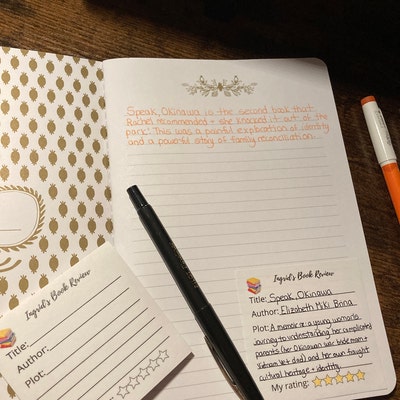 Speak, Okinawa is the second book that
Rachel recommended + she knocked it out of the
park! This was a painful exploration of identity
and a powerful story of family reconciliation.
Ingrid's Book Review
Title: Speak, Okinawa
Author: Elizabeth Miki Brina
Plot: A memoir + a young woman's
journey to understanding her complicated
parents (her Okinawan war bride mom +
Vietnam Vet dad) and her own fraught
cultural heritage + identity.
My rating:
Ingrid's Book Review
Title:
Author:
Plot: